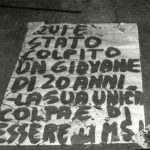 QUI È
STATO
COLPITO
UN GIOVANE
DI 20 ANNI
LA SUA UNICA
COLPA È DI
ESSERE